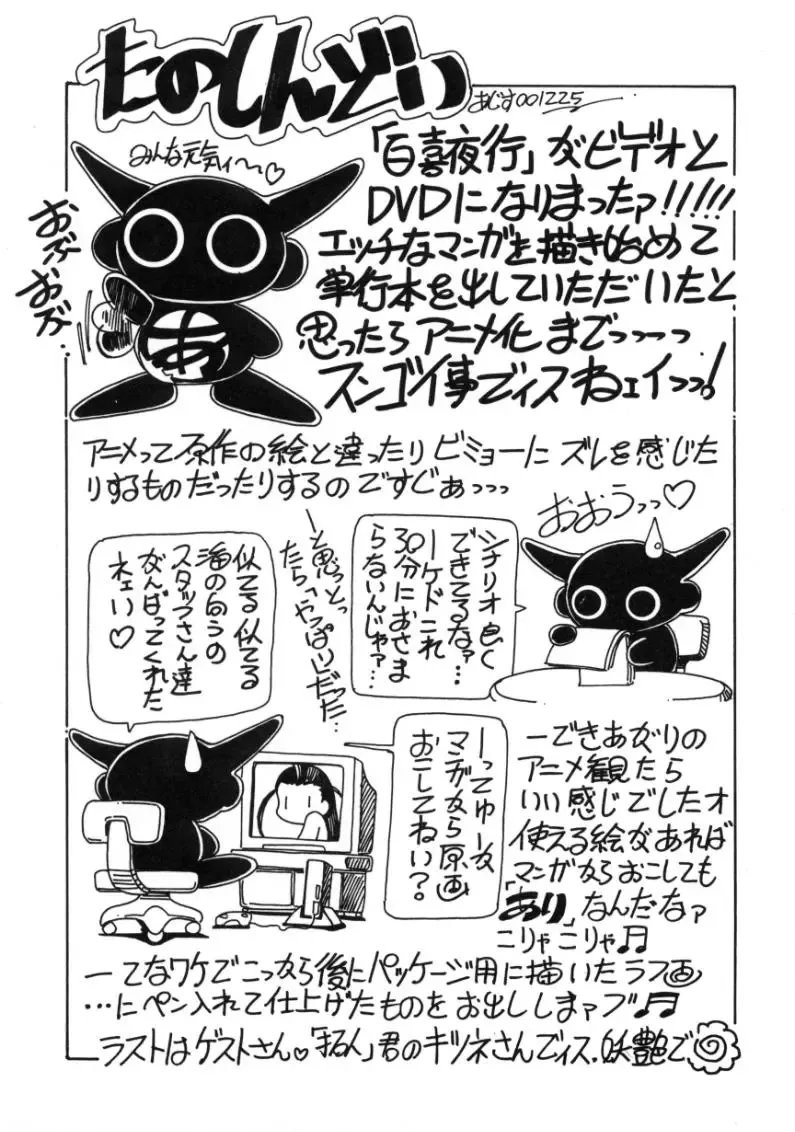 たのしんどい
あじす001225
みんな元気ィ〜♡
おぶ
おぶ…
「百喜夜行」がビデオと
DVDになりまったァ!!!!!
エッチなマンガを描き始めて
単行本を出していただいたと
思ったらアニメ化までっーーっ
スンゴイ事でィスねェイっっ!
あ
アニメって原作の絵と違ったりビミョーにズレを感じた
りするものだったりするのですがぁっっっ
おおうっっ♡
シナリオ良く
できてるなァ…
ーケドこれ
30分におさま
らないんじゃァ…
ーと思っとっ
たら「やっぱり」だった…
似てる似てる
海の向うの
スタッフさん達
がんばってくれた
ネェい♡
ーってゆーか
マンガから原画
おこしてねい?
ーできあがりの
アニメ観たら
いい感じでしたオ
使える絵があれば
マンガからおこしても
「あり」なんだなァ
こりゃこりゃ♬
ーてなワケでこっから後にパッケージ用に描いたラフ画
…にペン入れて仕上げたものをお出ししまァブ♬
ラストはゲストさん♡「拓人」君のキツネさんでィス.妖艶で